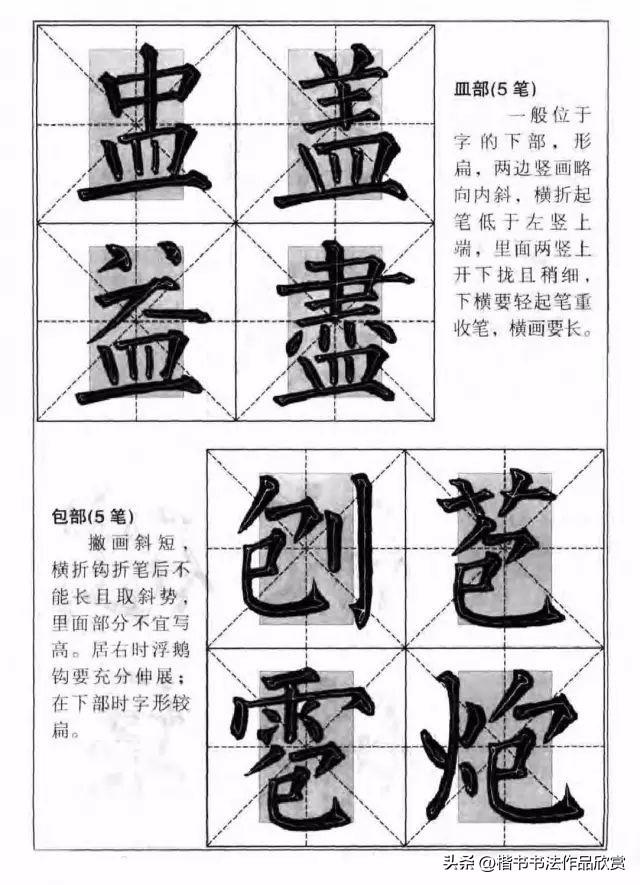 盅盖
益盡
皿部(5笔)
一般位于
字的下部，形
扁，两边竖画略
向内斜，横折起
笔低于左竖上
端，里面两竖上
开下拢且稍细，
下横要轻起笔重
收笔，横画要长。
包部(5笔)
撇画斜短，
横折钩折笔后不
能长且取斜势，
里面部分不宜写
高。居右时浮鹅
钩要充分伸展；
在下部时字形较
扁。
刨苞
雹炮
头条 @楷书书法作品欣赏